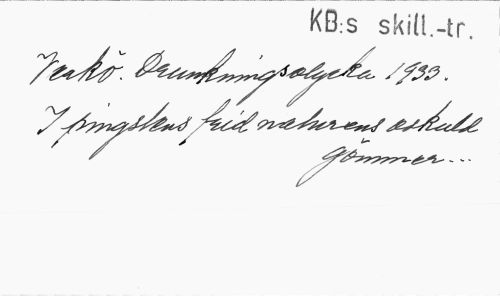 KB:s skill.-tr.
Verkö. Drunkningsolycka 1933.
I pingstens frid naturens oskuld
gömmer...